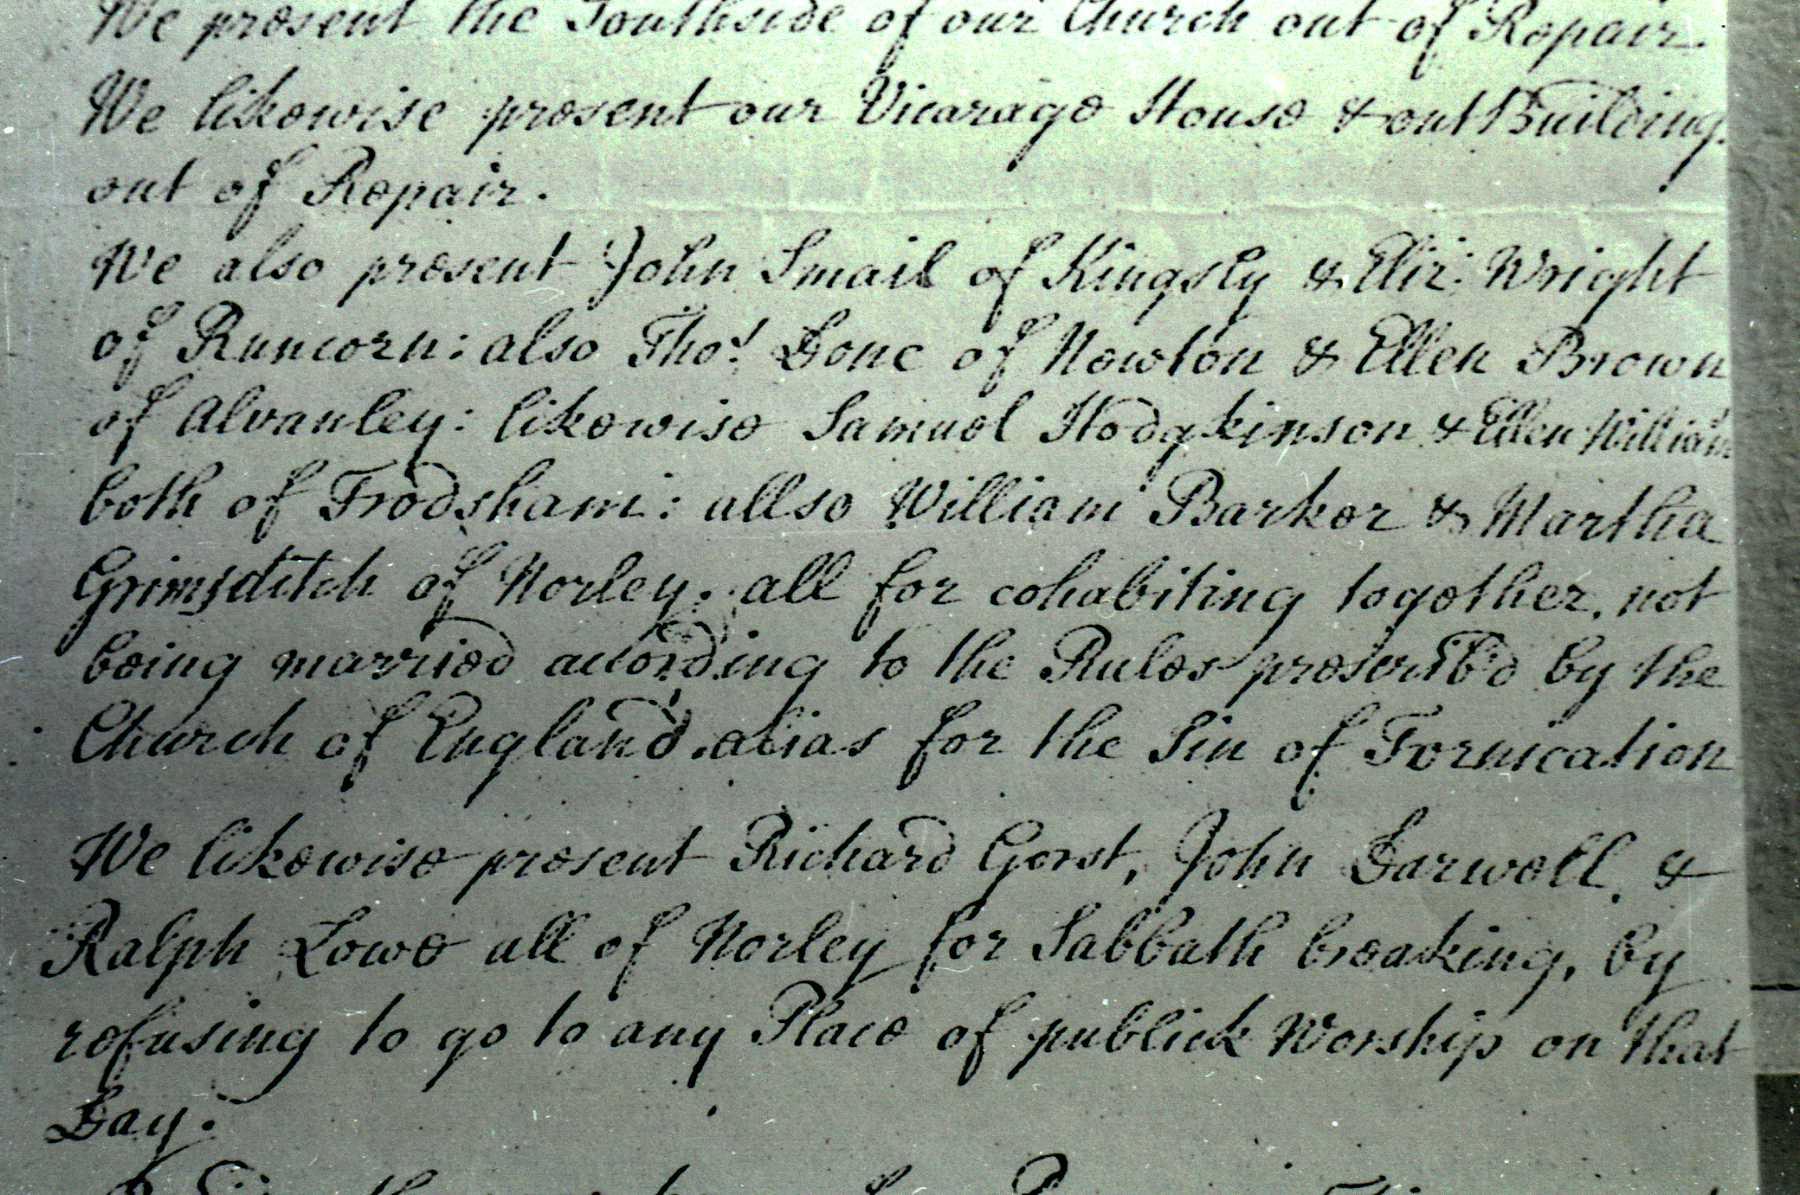 We present the Southside of our Church out of Repair.
We likewise present our Vicarage House & out Building
out of Repair.
We also present John Smail of Kingsly & Eliz: Wright
of Runcorn: also Thos. Done of Newton & Ellen Brown
of Alvanley: likewise Samuel Hodgkinson & Ellen Williams
both of Frodsham: allso William Barker & Martha
Grimsditch of Norley. all for cohabiting together, not
being married according to the Rules prescrib'd by the
Church of England. alias for the Sin of Fornication
We likewise present Richard Gorst, John Darwell, &
Ralph Lowe all of Norley for Sabbath breaking, by
refusing to go to any Place of publick Worship on that
Day.